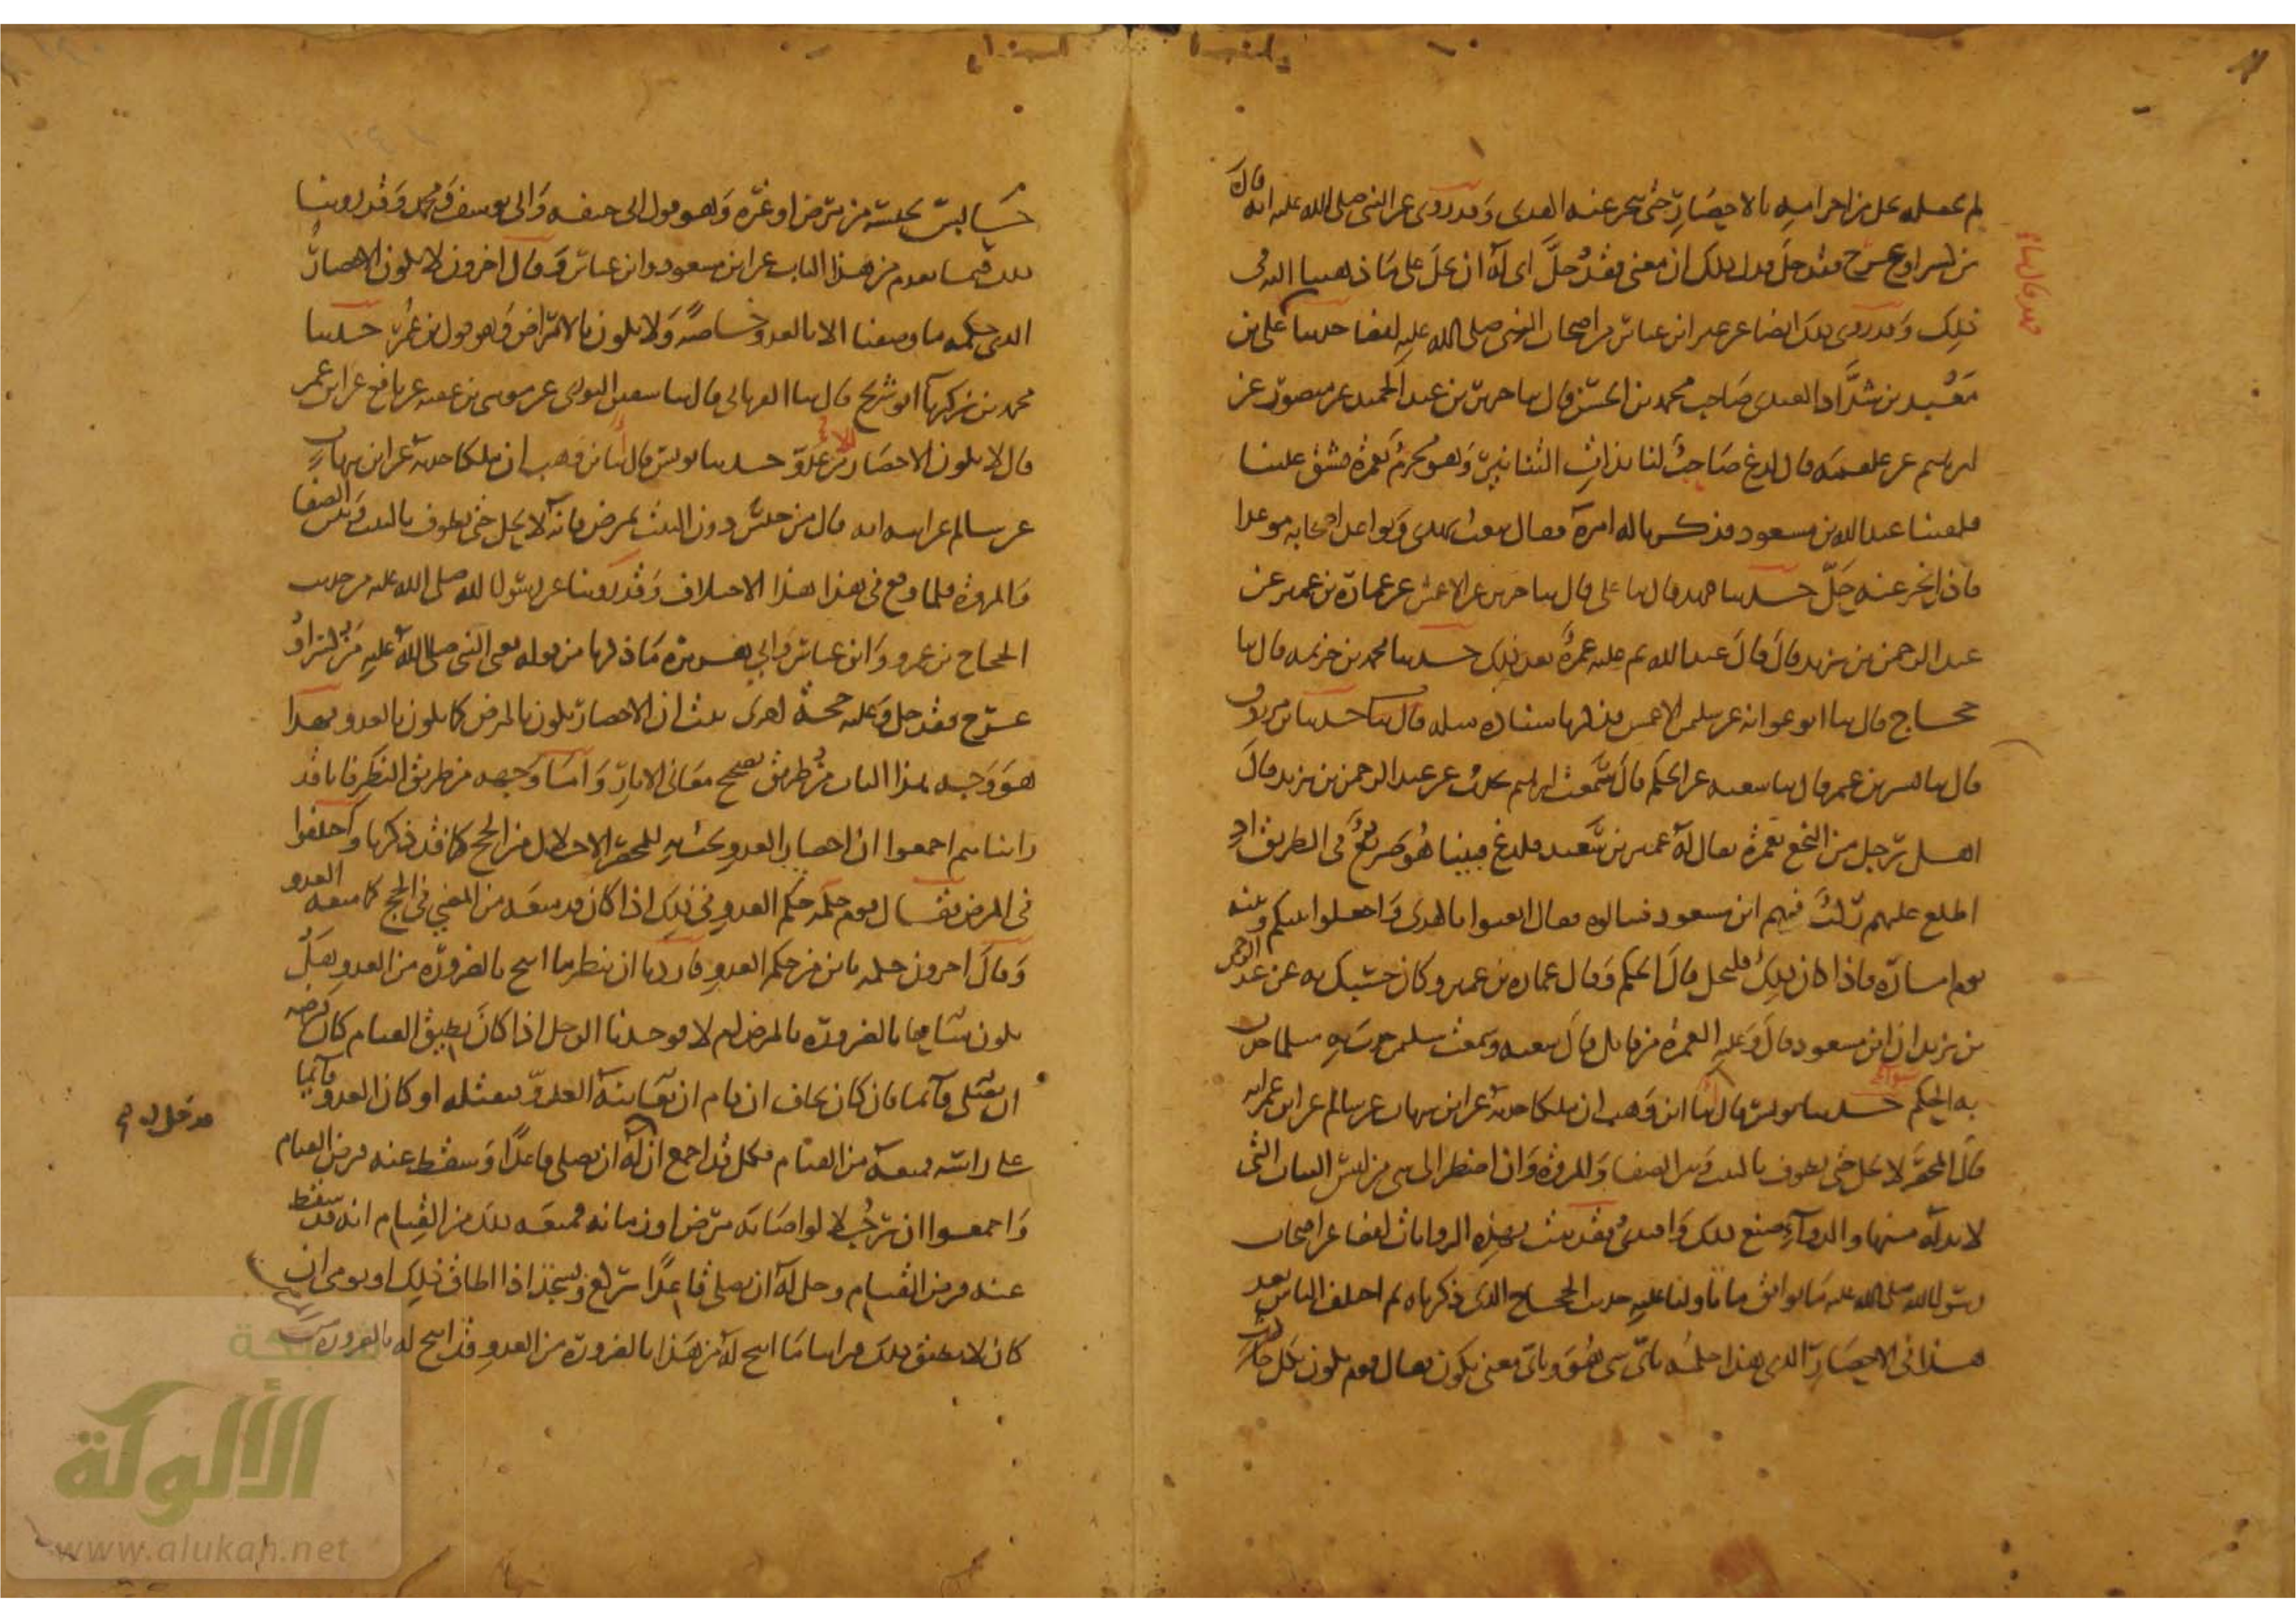 لم يجعله يحل من احرامه بالاحصار حتى ينحر عنه الهدى وقد روى عن النبى صلى الله عليه انه قال
من كسر او عرج فقد حل فدل ذلك ان معنى فقد حل اى له ان يحل على ما ذهبنا اليه فى
ذلك وقد روى ذلك ايضا عن غير ابن عباس من اصحاب النبى صلى الله عليه ايضا حدثنا على بن
معبد بن شداد العبدى صاحب محمد بن الحسن قال ثنا جرير بن عبد الحميد عن منصور عن
ابرهيم عن علقمه قال لدغ صاحب لنا بذات التنانير وهو محرم بعمرة فشق علينا
فلقينا عبد الله بن مسعود فذكرنا له امره فقال يبعث بهدى ويواعد اصحابه موعدا
فاذا نحر عنه حل حدثنا فهد قال ثنا على قال ثنا جرير عن الاعمش عن عمارة بن عمير عن
عبد الرحمن بن يزيد قال قال عبد الله ثم عليه عمرة بعد ذلك حدثنا محمد بن خزيمه قال ثنا
حجاج قال ثنا ابو عوانه عن سليمن الاعمش فذكر باسناده مثله حدثنا ابن مرزوق
قال ثنا بشر بن عمر قال ثنا شعبه عن الحكم قال سمعت ابرهيم يحدث عن عبد الرحمن بن يزيد قال
اهل رجل من النخع بعمرة يقال له عمير بن سعيد فلدغ فبينا هو صريع فى الطريق اذ
اطلع عليهم ركب فيهم ابن مسعود فسالوه فقال ابعثوا بالهدى واجعلوا بينكم وبينه
يوم امارة فاذا كان ذلك فليحل قال الحكم وقال عماره بن عمير وكان حسبك به عن عبد الرحمن
بن يزيد ان ابن مسعود قال وعليه العمرة من قابل قال شعبه وسمعت سليمن حدث به مثل ما حدث
به الحكم حدثنا يونس قال انا ابن وهب ان ملكا حدثه عن ابن شهاب عن سالم عن ابن عمر انه
قال المحصر لا يحل حتى يطوف بالبيت وبين الصفا والمروة وان اضطر الى شى من لبس الثياب التى
لا بد له منها والدواء صنع ذلك وافتدى فقد ثبت بهذه الروايات ايضا عن اصحاب
رسول الله صلى الله عليه ما يوافق ما تاولنا عليه حديث الحجاج الذى ذكرناه ثم اختلف الناس بعد
هذا فى الاحصار الذى هذا حكمه باى شى هو وباى معنى يكون فقال قوم يكون بكل حابس
حابس يحبسه من مرض او غيره وهو قول ابى حنيفه وابى يوسف ومحمد وقد روينا
ذلك فيما تقدم من هذا الباب عن ابن مسعود وابن عباس وقال اخرون لا يكون الاحصار
الذى حكمه ما وصفنا الا بالعدو خاصة ولا يكون بالامراض وهو قول بن عمر حدثنا
محمد بن زكريا ابو شريح قال ثنا الفريابى قال ثنا سفين الثورى عن موسى بن عقبه عن نافع عن ابن عمر
قال لا يكون الاحصار الا من عدو حدثنا يونس قال انا بن وهب ان ملكا حدثه عن ابن شهاب
عن سالم عن ابيه انه قال من حبس دون البيت بمرض فانه لا يحل حتى يطوف بالبيت وبين الصفا
والمروة فلما وقع فى هذا هذا الاختلاف وقد روينا عن رسول الله صلى الله عليه من حديث
الحجاج بن عمرو وابن عباس وابى هريرة ما ذكرنا من قوله يعنى النبى صلى الله عليه من كسر او
عرج فقد حل وعليه حجة اخرى ثبت ان الاحصار يكون بالمرض كما يكون بالعدو فهذا
هو وجه هذا الباب من طريق تصحيح معانى الاثار واما وجهه من طريق النظر فانا قد
راينا هم اجمعوا ان احصار العدو يجب به للمحصر الاحلال من الحج كما قد ذكرنا واختلفوا
فى المرض فقال قوم حكمه حكم العدو فى ذلك اذا كان قد منعه من المضى فى الحج كما منعه العدو
وقال اخرون حكمه باين من حكم العدو فاردنا ان ننظر ما ابيح بالضرورة من العدو هل
يكون مباحا بالضرورة بالمرض ام لا فوجدنا الرجل اذا كان يطيق القيام كان فرضه
ان يصلى قائما فان كان يخاف ان قام ان يعاينه العدو فيقتله او كان العدو قائما
على راسه فمنعه من القيام فكل قد اجمع ان له ان يصلى قاعدا وسقط عنه فرض القيام
واجمعوا ان رجلا لو اصابه مرض او زمانه فمنعه ذلك من القيام انه قد سقط
عنه فرض القيام وحل له ان يصلى قاعدا يركع ويسجد اذا اطاق ذلك او يومى ان
كان لا يطيق ذلك فراينا ما ابيح له من هذا بالضرورة من العدو قد ابيح له بالضرورة
شبكة
الألوكة
www.alukah.net